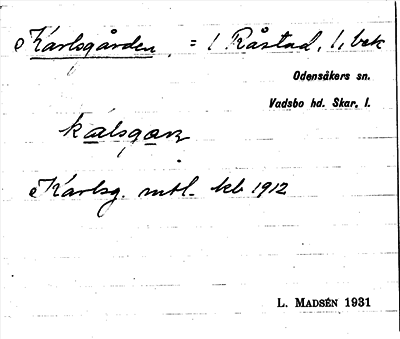 Karlsgården, = 1 Råstad, 1, bek
Odensåkers sn.
Vadsbo hd. Skar. l.
kalsgaɳ
Karlsg. mtl. kb 1912
L. MADSÉN 1931